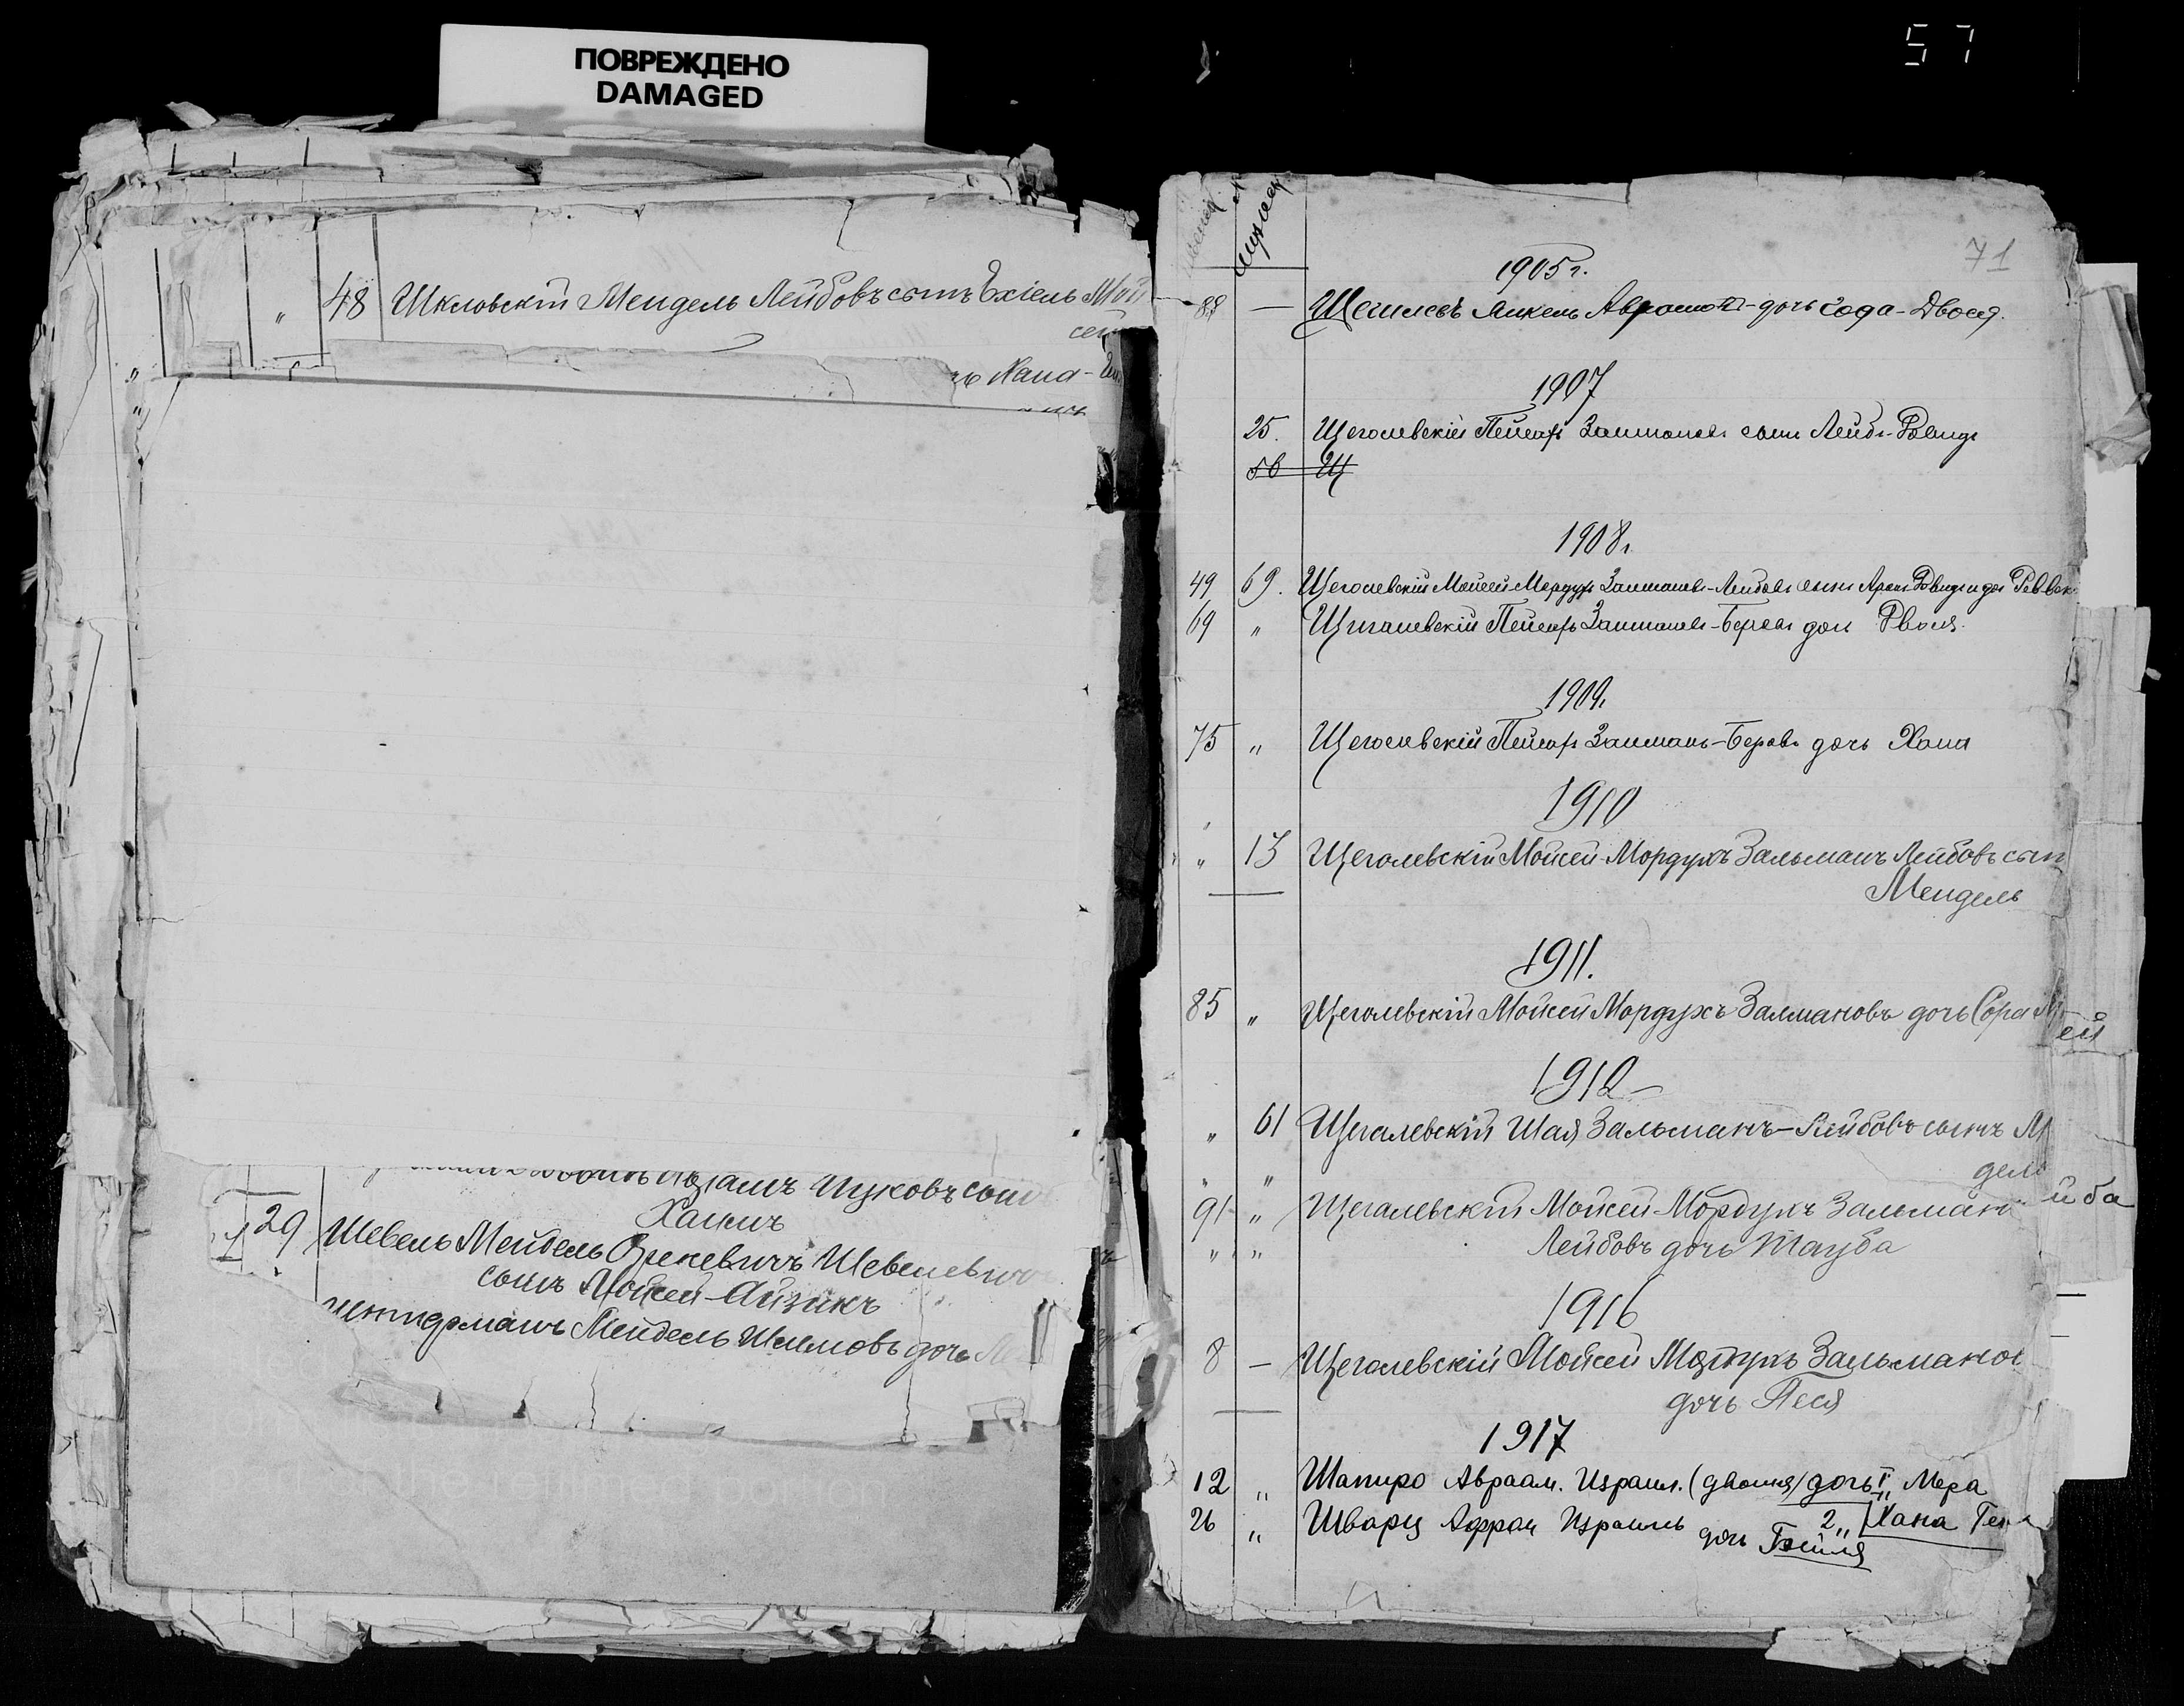 ПОВРЕЖДЕНО
DAMAGED
57
" 48 Шкловскій Мендель Лейбовъ сынъ Ехіель Мой
сей
Хана-
"
"
Ицковъ сынъ
Хаимъ
29 Шевель Мендель Шевелевичъ
сынъ Мойсей-Айзикъ
Мендель Шлимовъ дочь
71
женск мужск
1905 г.
88 — Янкель дочь Сода-Двося.
1907
25. Щеголевскій Пейсахъ Залмановъ сынъ Лейба-Довидъ
56 Щ
1908 г.
49 69. Щеголевскій Мойсей Мордухъ Залмановъ-Лейбовъ сынъ Аронъ Довидъ и дочь Ревека
69 " Щеголевскій Пейсахъ Залмановъ-Беровъ дочь Двося.
1909 г.
75 " Щеголевскій Пейсахъ Залманъ-Беровъ дочь Хана
1910
" 13 Щеголевскій Мойсей-Мордухъ Зальманъ Лейбовъ сынъ
Мендель
1911.
85 " Щеголевскій Мойсей Мордухъ Залмановъ дочь Сора
ей
1912
" 61 Щегалевскій Шая Зальманъ-Лейбовъ сынъ М
" " дель
91 " Щегалевскій Мойсей-Мордухъ Зальман йба
" " Лейбовъ дочь Тауба
1916
8 — Щеголевскій Мойсей Мортухъ Зальманов
дочь Песя
1917
12 " Шапиро Авраам. Израил. (двойня) дочь 1" Мера
2" Хана Ген
26 " Шварц Израиль дочь